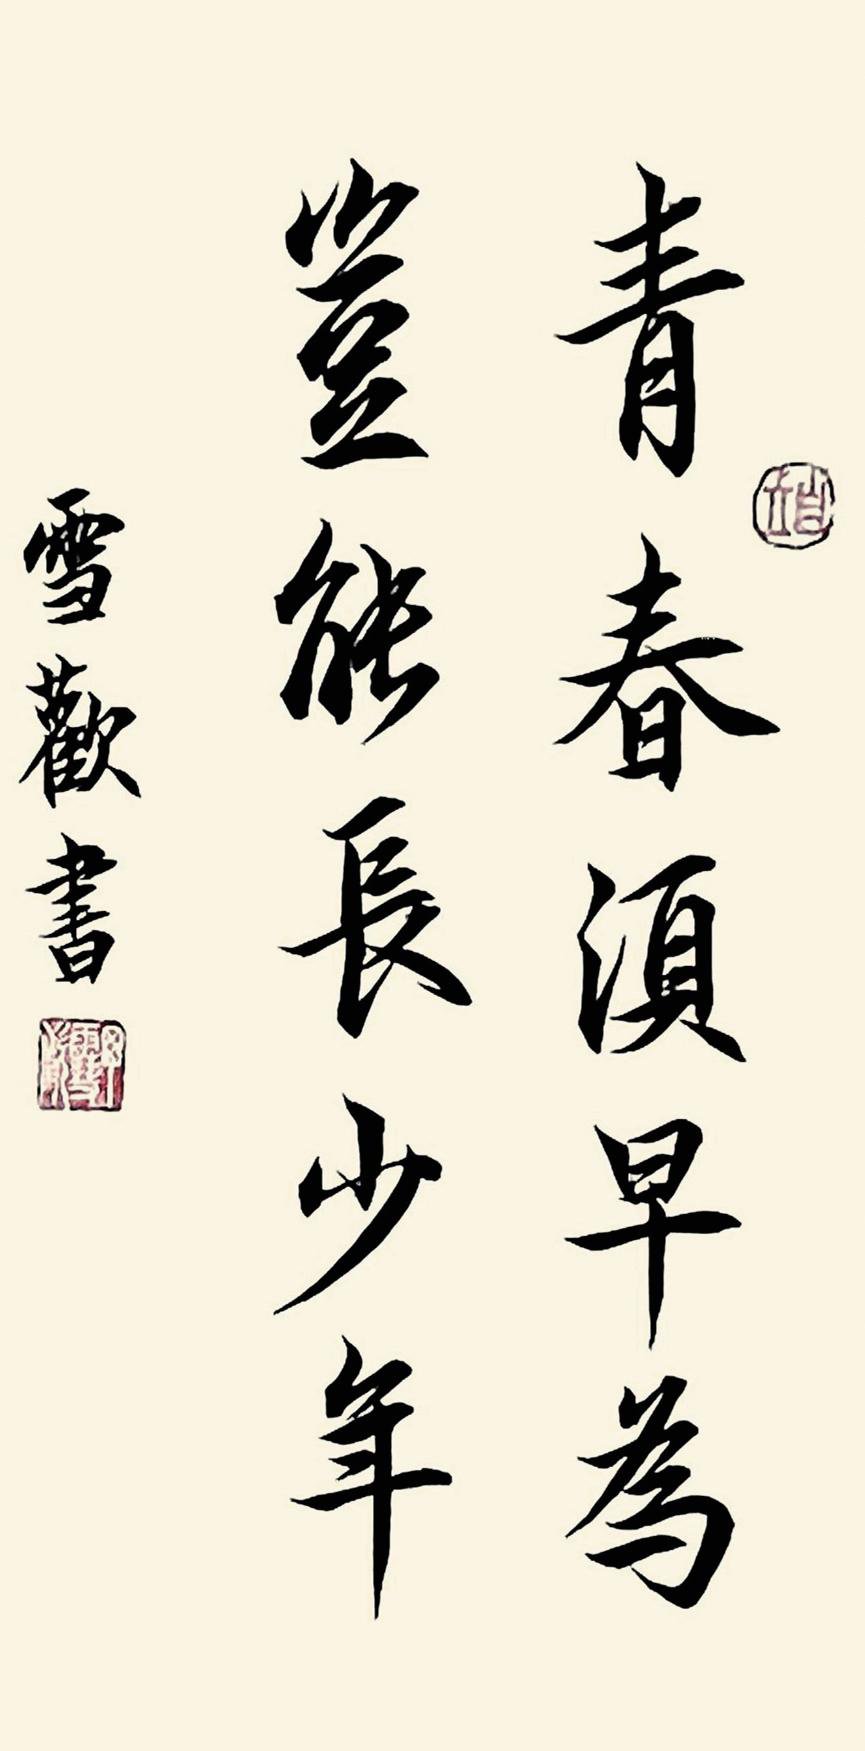 青春須早為
豈能長少年
雪歡書